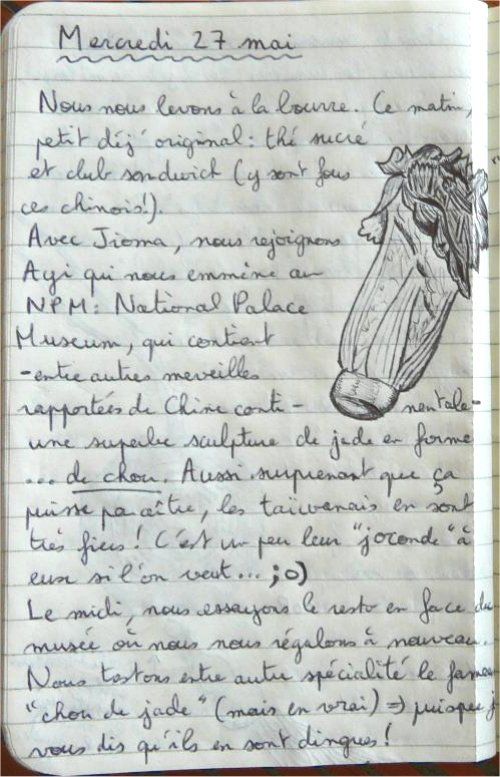 Mercredi 27 mai
Nous nous levons à la bourre. Ce matin,
petit déj' original: thé sucré
et club sandwich (y sont fous
ces chinois!).
Avec Jioma, nous rejoignons
Ayi qui nous emmène au
NPM: National Palace
Museum, qui contient
-entre autres merveilles
rapportées de Chine conti- nentale-
une superbe sculpture de jade en forme
... de chou. Aussi surprenant que ça
puisse paraître, les taïwanais en sont
très fiers! C'est un peu leur "joconde" à
eux si l'on veut... ;o)
Le midi, nous essayons le resto en face du
musée où nous nous régalons à nouveau.
Nous testons entre autre spécialité le fameu
"chou de jade" (mais en vrai) => puisque j
vous dis qu'ils en sont dingues!